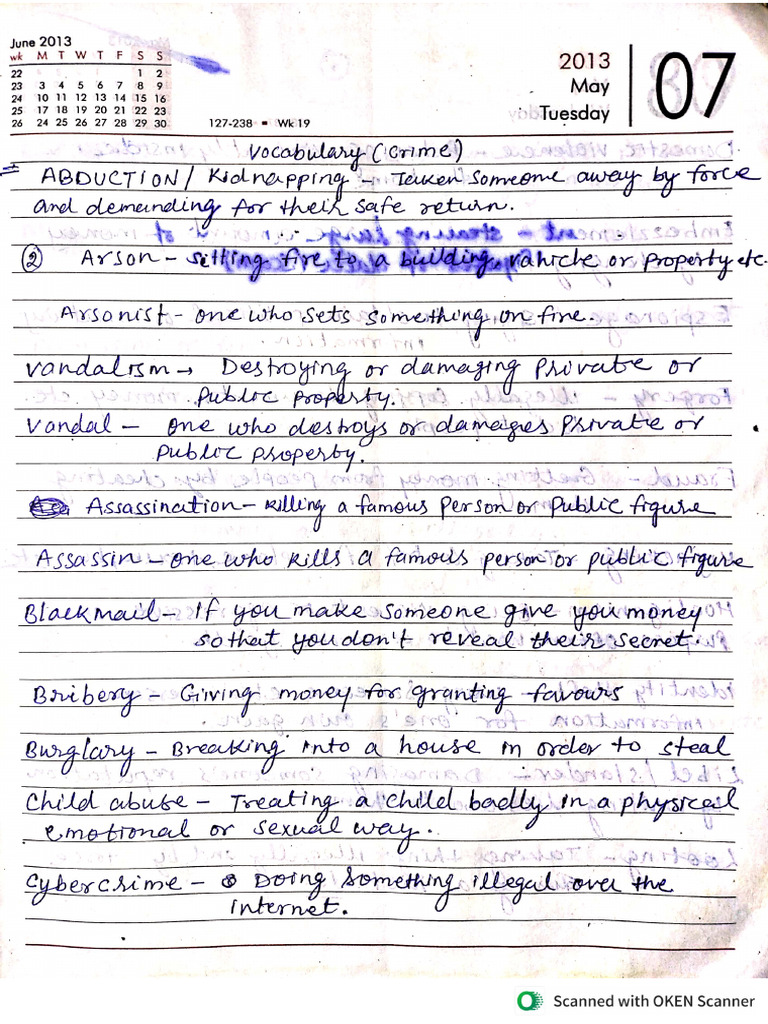 June 2013
wk M T W T F S S
22 1 2
23 3 4 5 6 7 8 9
24 10 11 12 13 14 15 16
25 17 18 19 20 21 22 23
26 24 25 26 27 28 29 30
127-238 = Wk 19
2013
May
Tuesday
07
Vocabulary (Crime)
ABDUCTION / Kidnapping - Taken someone away by force
and demanding for their safe return.
② Arson - sitting fire to a building, vahicle or property etc.
Arsonist - one who sets something on fire.
Vandalism → Destroying or damaging private or
public property.
Vandal - one who destroys or damages private or
public property.
Assassination - killing a famous person or Public figure
Assassin - one who kills a famous person or public figure
Blackmail - If you make someone give you money
so that you don't reveal their secret.
Bribery - Giving money for granting favours
Burglary - Breaking into a house in order to steal
Child abuse - Treating a child badly in a physical
emotional or sexual way.
Cybercrime - Doing something illegal over the
internet.
Scanned with OKEN Scanner